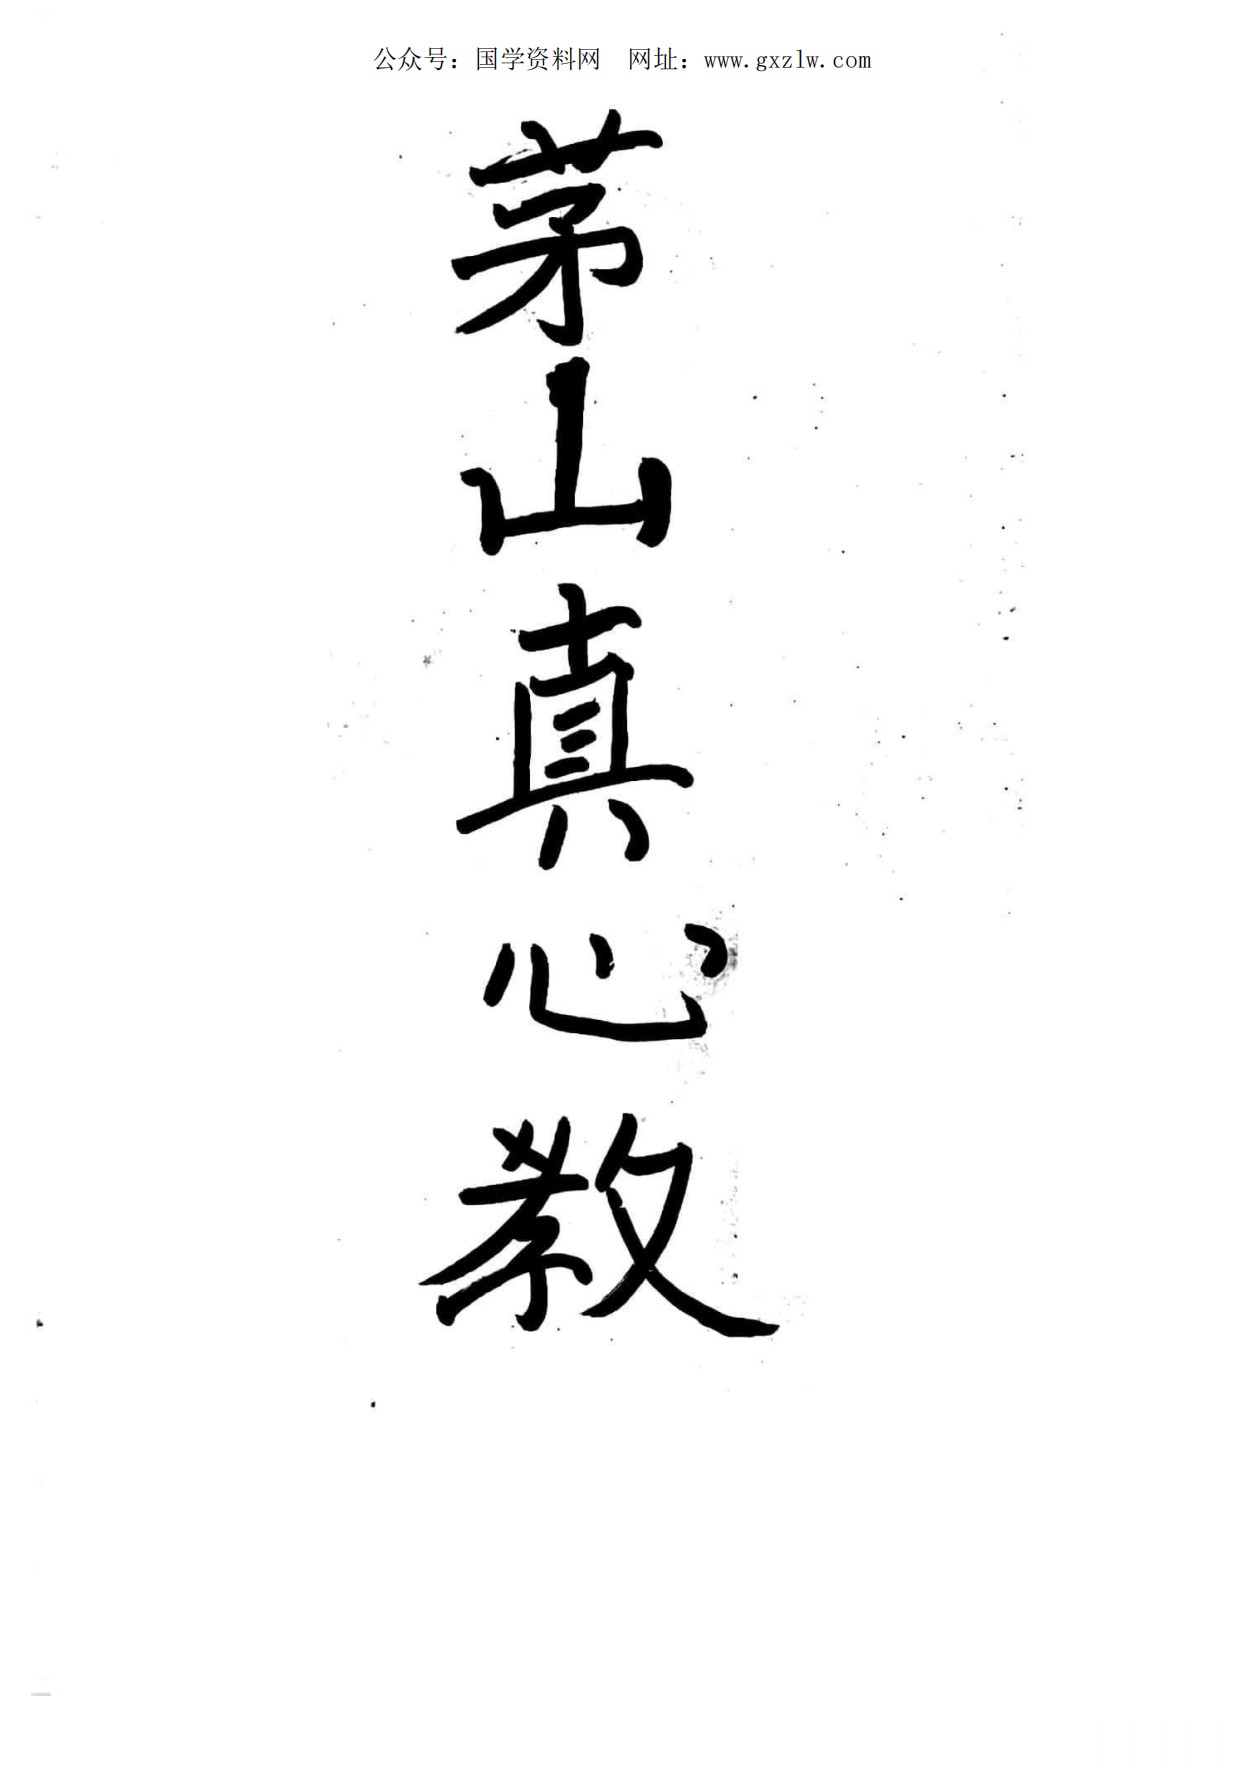 公众号：国学资料网　网址：www.gxzlw.com
茅山真心教